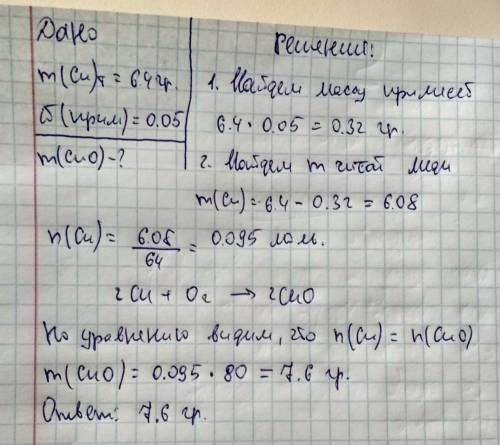 Дано
m(Cu)т = 6.4 гр.
ω(прим) = 0.05
m(CuO) - ?
Решение:
1. Найдем массу примесей
6.4 • 0.05 = 0.32 гр.
2. Найдем m чистой меди
m(Cu) = 6.4 - 0.32 = 6.08
n(Cu) = 6.08/64 = 0.095 моль.
2Cu + O2 → 2CuO
По уравнению видим, что n(Cu) = n(CuO)
m(CuO) = 0.095 • 80 = 7.6 гр.
Ответ: 7.6 гр.